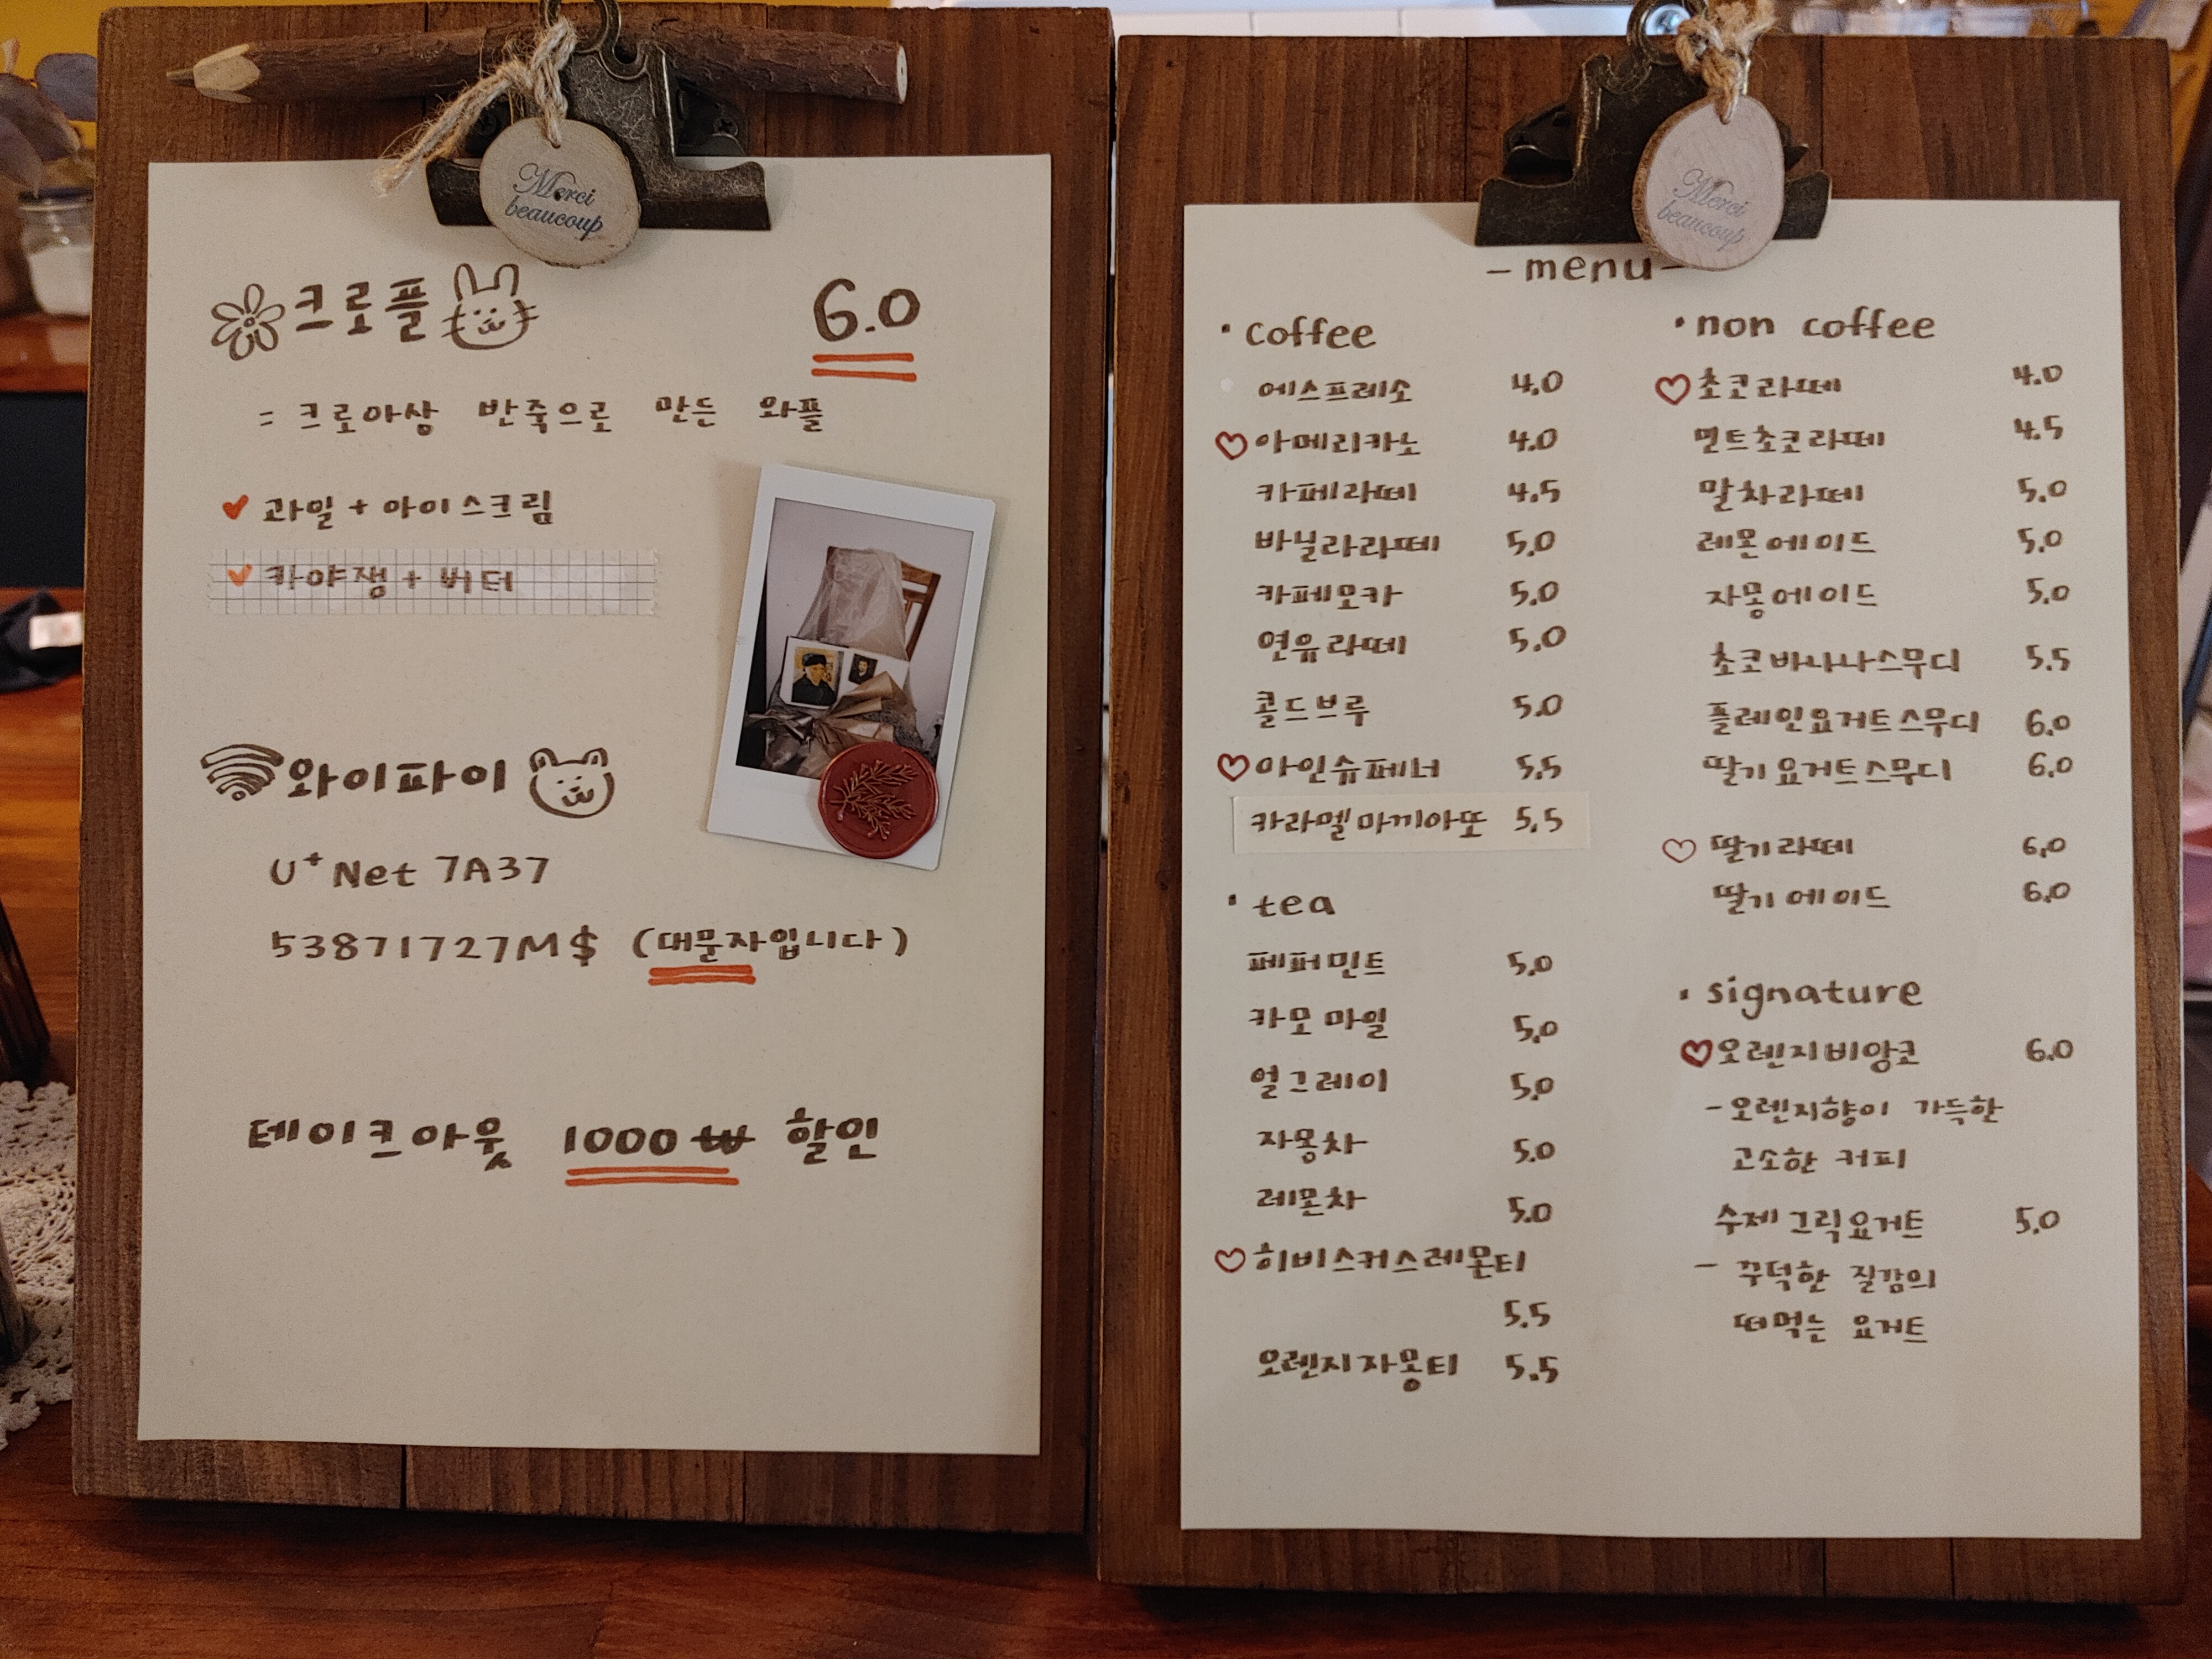 Merci
beaucoup
크로플 6.0
= 크로아상 반죽으로 만든 와플
과일 + 아이스크림
카야잼 + 버터
와이파이
U+Net 7A37
53871727M$ (대문자입니다)
테이크아웃 1000₩ 할인
Merci
beaucoup
- menu -
· Coffee
에스프레소 4.0
아메리카노 4.0
카페라떼 4.5
바닐라라떼 5.0
카페모카 5.0
연유라떼 5.0
콜드브루 5.0
아인슈페너 5.5
카라멜마끼아또 5.5
· tea
페퍼민트 5.0
카모마일 5.0
얼그레이 5.0
자몽차 5.0
레몬차 5.0
히비스커스레몬티
5.5
오렌지자몽티 5.5
· non coffee
초코라떼 4.0
민트초코라떼 4.5
말차라떼 5.0
레몬에이드 5.0
자몽에이드 5.0
초코바나나스무디 5.5
플레인요거트스무디 6.0
딸기요거트스무디 6.0
딸기라떼 6.0
딸기에이드 6.0
· signature
오렌지비앙코 6.0
- 오렌지향이 가득한
고소한 커피
수제그릭요거트 5.0
- 꾸덕한 질감의
떠먹는 요거트